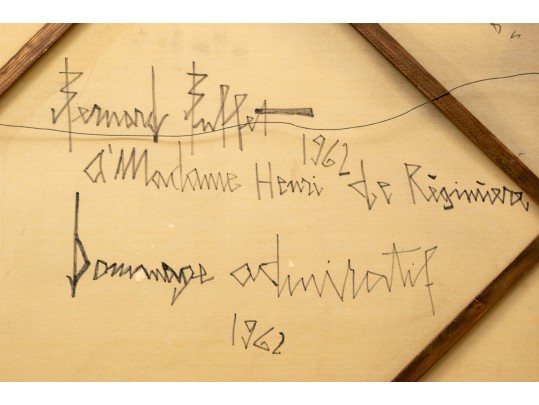 Bernard Buffet
1962
à Madame Henri de
hommage admiratif
1962